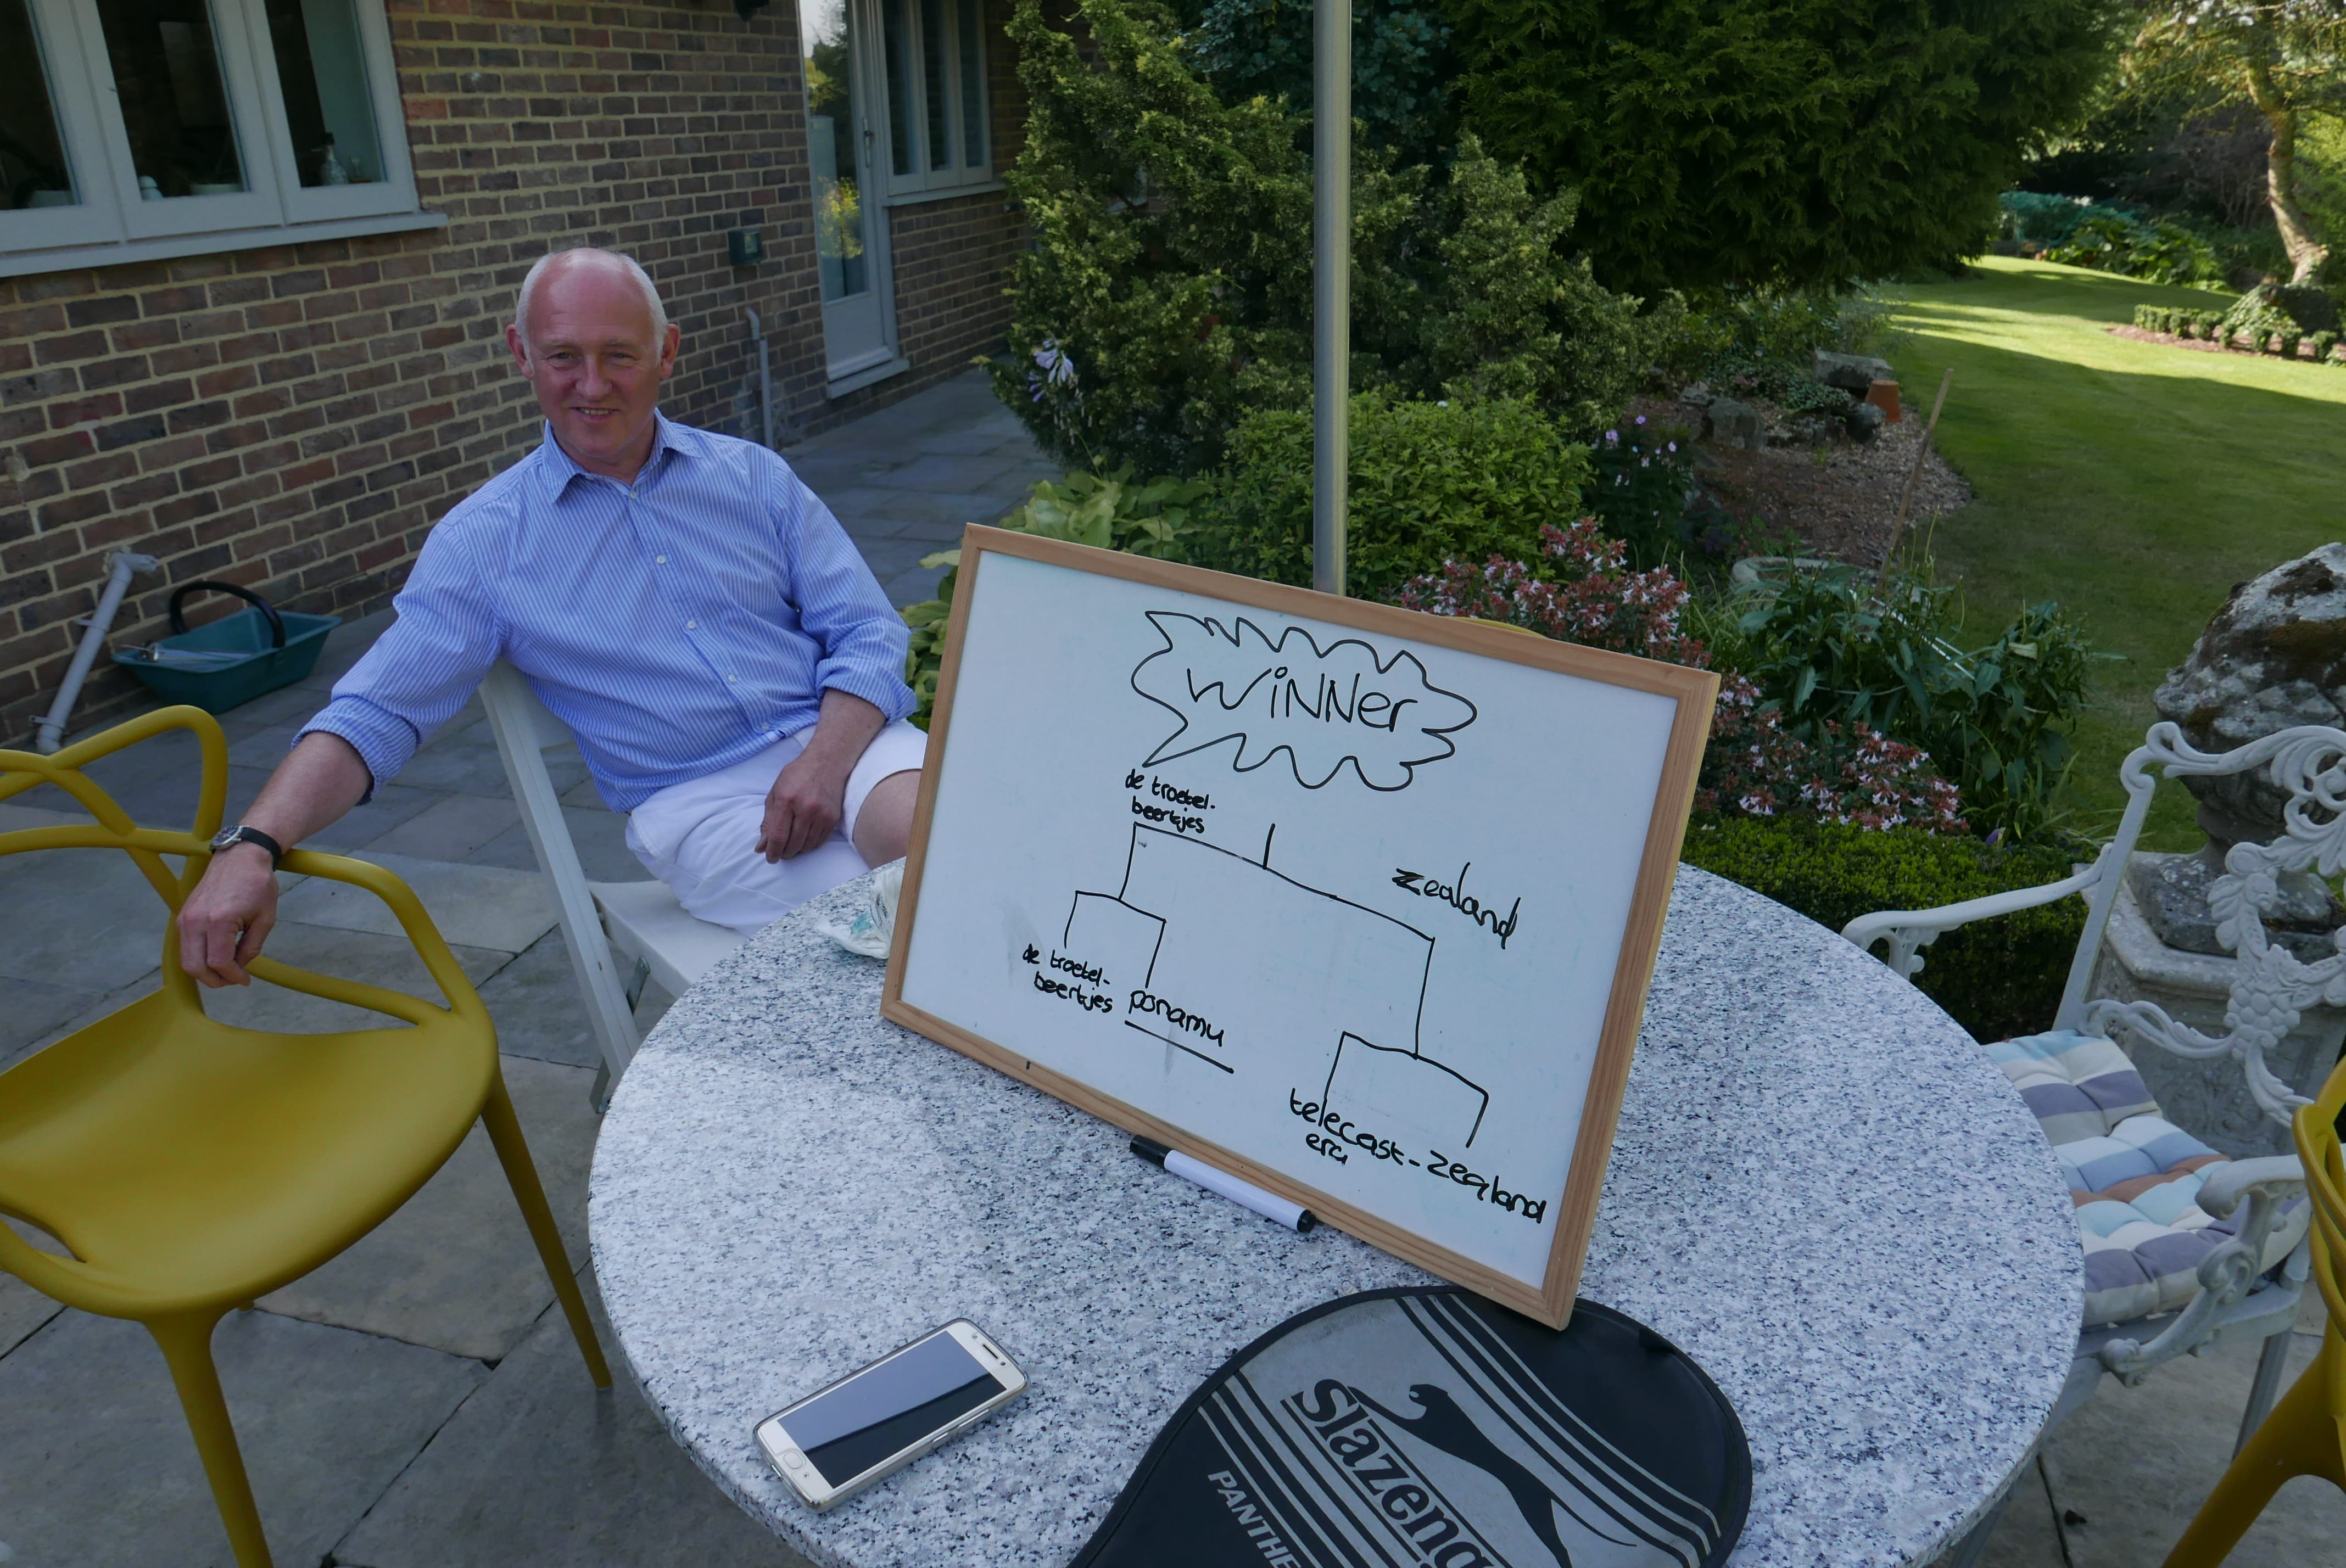 WiNNer
de troetel-
beertjes
zealand
de troetel-
beertjes
ponamu
telecast-
era
zealand
Slazeng
PANTHE